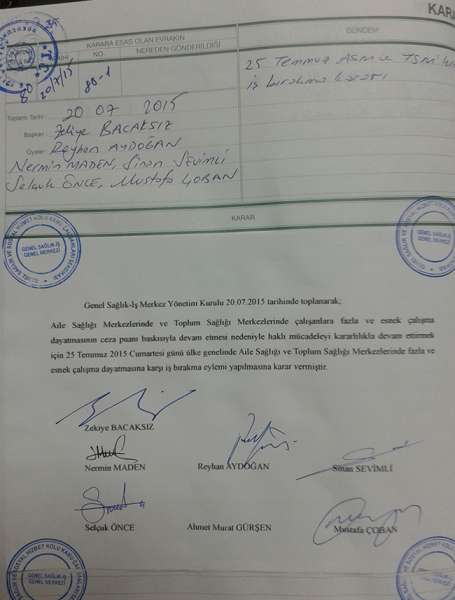 KARAR
KARARA ESAS OLAN EVRAKIN
GÜNDEM
NO
NEREDEN GÖNDERİLDİĞİ
80
20/7/15
80-1
25 Temmuz ASM ve TSM
iş bırakma kararı
Toplantı Tarihi: 20 07 2015
Başkan: Zekiye BACAKSIZ
Üyeler: Reyhan AYDOĞAN
Nermin MADEN, Sinan SEVİMLİ
Selçuk ÖNCE, Mustafa ÇOBAN
KARAR
GENEL SAĞLIK-İŞ
GENEL MERKEZİ
GENEL SAĞLIK-İŞ
GENEL MERKEZİ
Genel Sağlık-İş Merkez Yönetim Kurulu 20.07.2015 tarihinde toplanarak;
Aile Sağlığı Merkezlerinde ve Toplum Sağlığı Merkezlerinde çalışanlara fazla ve esnek çalışma
dayatmasının ceza puanı baskısıyla devam etmesi nedeniyle haklı mücadeleyi kararlılıkla devam ettirmek
için 25 Temmuz 2015 Cumartesi günü ülke genelinde Aile Sağlığı ve Toplum Sağlığı Merkezlerinde fazla ve
esnek çalışma dayatmasına karşı iş bırakma eylemi yapılmasına karar vermiştir.
Zekiye BACAKSIZ
Nermin MADEN
Reyhan AYDOĞAN
Sinan SEVİMLİ
Selçuk ÖNCE
Ahmet Murat GÜRŞEN
Mustafa ÇOBAN
GENEL SAĞLIK-İŞ
GENEL MERKEZİ
GENEL SAĞLIK-İŞ
GENEL MERKEZİ